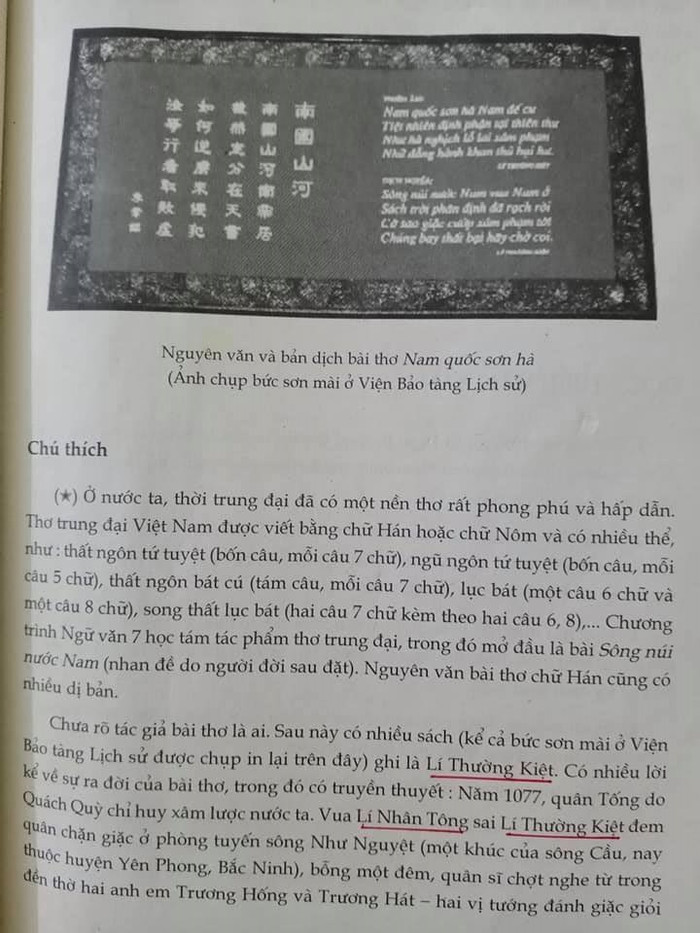 南國山河
南國山河南帝居
截然定分在天書
如何逆虜來侵犯
汝等行看取敗虛
Nam quốc sơn hà Nam đế cư
Tiệt nhiên định phận tại thiên thư
Như hà nghịch lỗ lai xâm phạm
Nhữ đẳng hành khan thủ bại hư.
DỊCH NGHĨA:
Sông núi nước Nam vua Nam ở
Sách trời phân định đã rạch ròi
Cớ sao giặc cướp xâm phạm tới
Chúng bay thất bại hãy chờ coi.
Nguyên văn và bản dịch bài thơ Nam quốc sơn hà
(Ảnh chụp bức sơn mài ở Viện Bảo tàng Lịch sử)
Chú thích
(★) Ở nước ta, thời trung đại đã có một nền thơ rất phong phú và hấp dẫn.
Thơ trung đại Việt Nam được viết bằng chữ Hán hoặc chữ Nôm và có nhiều thể,
như : thất ngôn tứ tuyệt (bốn câu, mỗi câu 7 chữ), ngũ ngôn tứ tuyệt (bốn câu, mỗi
câu 5 chữ), thất ngôn bát cú (tám câu, mỗi câu 7 chữ), lục bát (một câu 6 chữ và
một câu 8 chữ), song thất lục bát (hai câu 7 chữ kèm theo hai câu 6, 8),... Chương
trình Ngữ văn 7 học tám tác phẩm thơ trung đại, trong đó mở đầu là bài Sông núi
nước Nam (nhan đề do người đời sau đặt). Nguyên văn bài thơ chữ Hán cũng có
nhiều dị bản.
Chưa rõ tác giả bài thơ là ai. Sau này có nhiều sách (kể cả bức sơn mài ở Viện
Bảo tàng Lịch sử được chụp in lại trên đây) ghi là Lí Thường Kiệt. Có nhiều lời
kể về sự ra đời của bài thơ, trong đó có truyền thuyết : Năm 1077, quân Tống do
Quách Quỳ chỉ huy xâm lược nước ta. Vua Lí Nhân Tông sai Lí Thường Kiệt đem
quân chặn giặc ở phòng tuyến sông Như Nguyệt (một khúc của sông Cầu, nay
thuộc huyện Yên Phong, Bắc Ninh), bỗng một đêm, quân sĩ chợt nghe từ trong
đền thờ hai anh em Trương Hống và Trương Hát – hai vị tướng đánh giặc giỏi